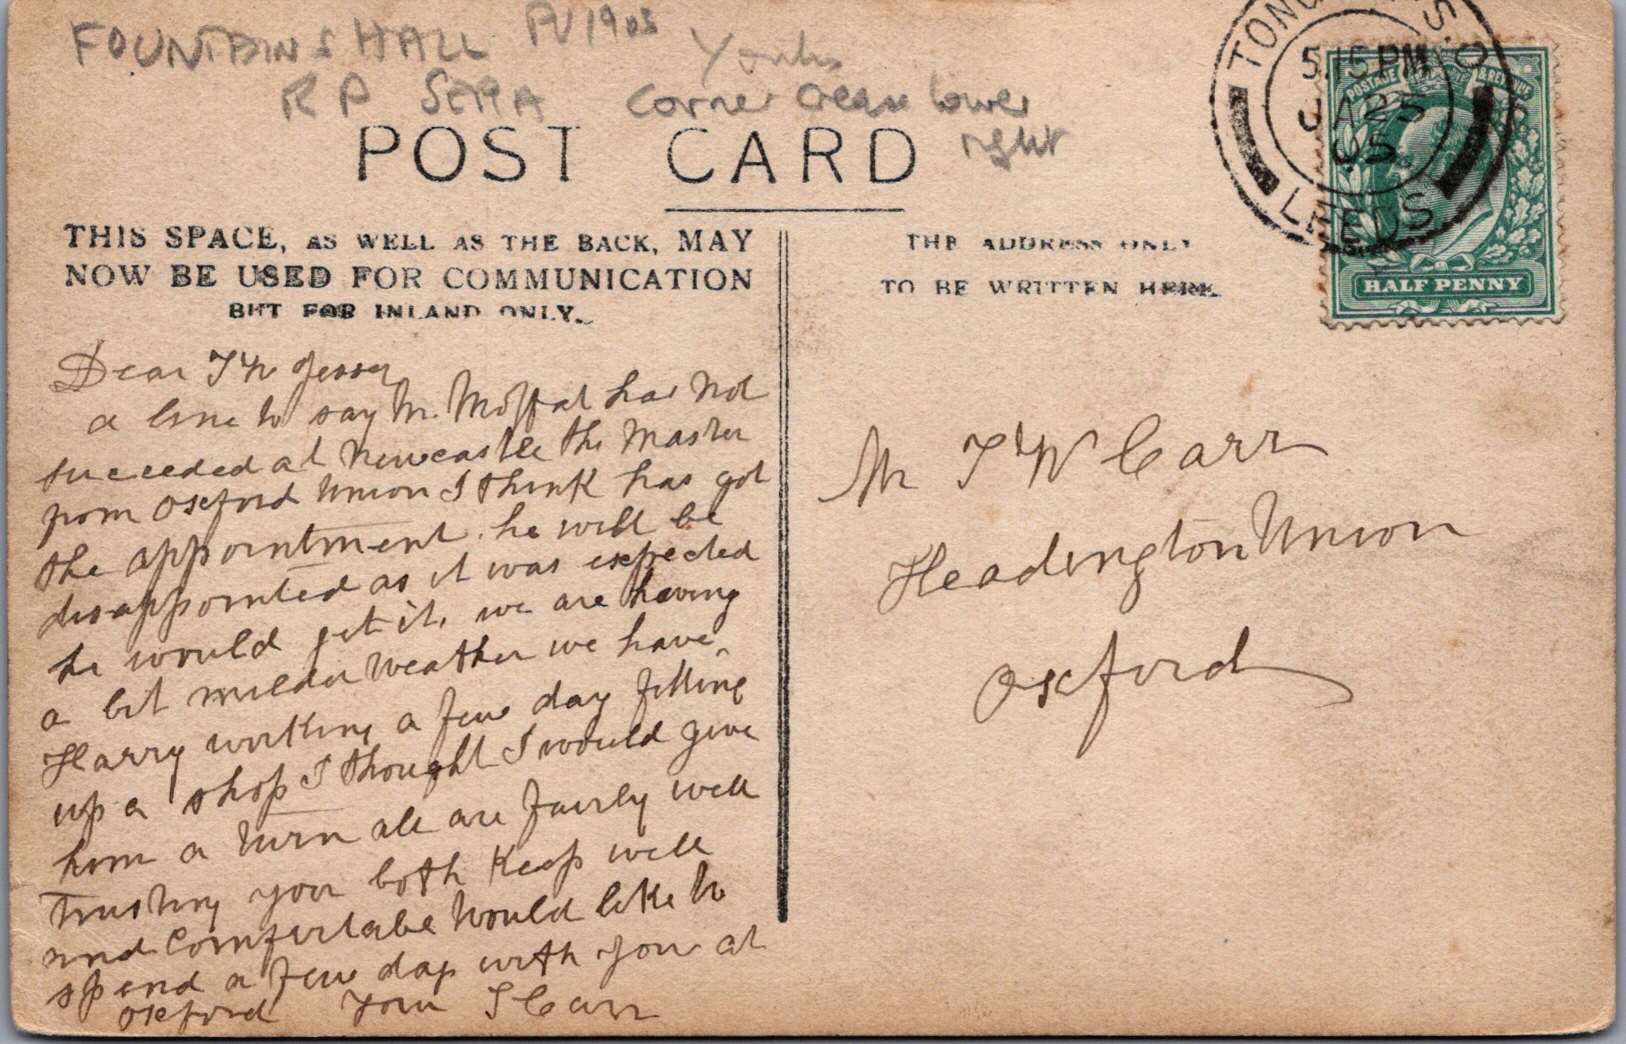 FOUNTAINS HALL PU 1905
Yorks
R P SEPIA corner crease lower
right
POST CARD
THIS SPACE, AS WELL AS THE BACK, MAY
NOW BE USED FOR COMMUNICATION
BUT FOR INLAND ONLY.
THE ADDRESS ONLY
TO BE WRITTEN HERE.
5.15 PM
JA 25
05
LEEDS
POSTAGE & REVENUE
HALF PENNY
Dear T W
a line to say Mr. Moffat has not
succeeded at Newcastle the Master
from Oxford Union I think has got
the appointment. he will be
disappointed as it was expected
he would get it. we are having
a bit milder weather we have
Harry working a few day fitting
up a shop I thought I would give
him a turn all are fairly well
Trusting you both keep well
and Comfortabe Would like to
spend a few days with you at
Oxford Your T Carr
Mr T W Carr
Headington Union
Oxford